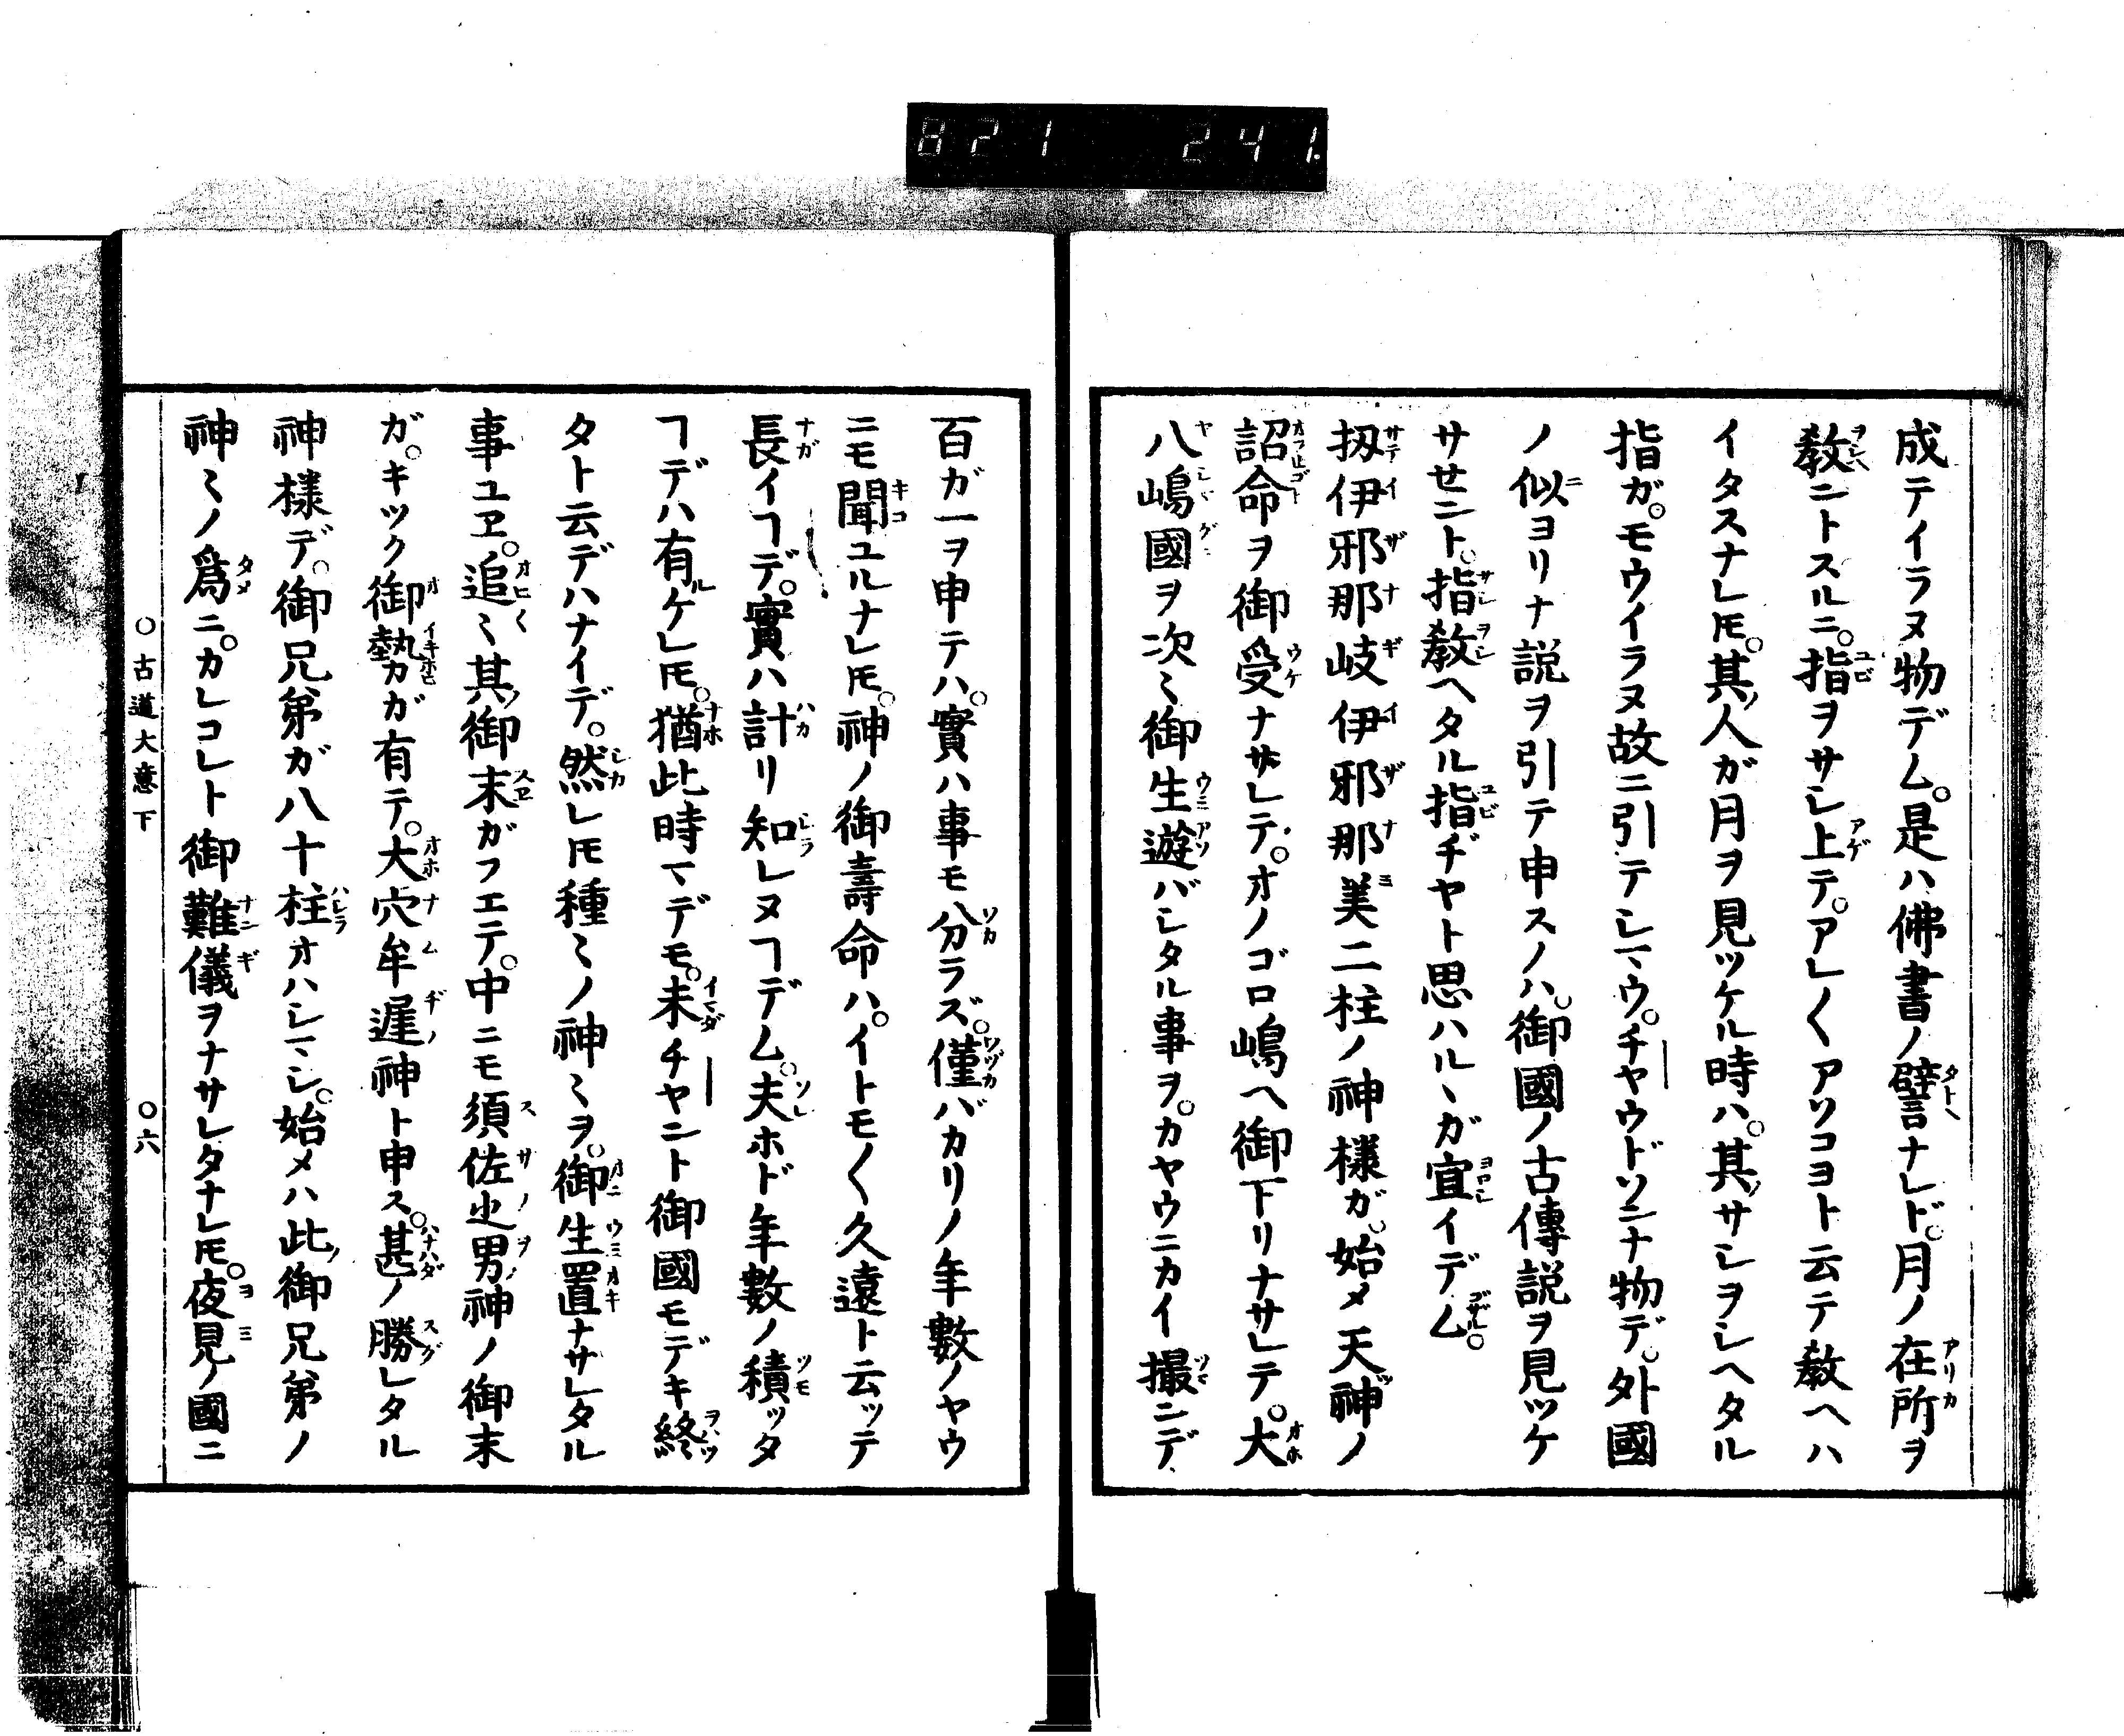 821 241.
成テイラヌ物デム。是ハ佛書ノ譬ナレド。月ノ在所ヲ
教ニトスルニ。指ヲサシ上テ。アレ〱アソコヨト云テ教ヘハ
イタスナレ𪜈。其ノ人ガ月ヲ見ツケル時ハ。其ノサシヲシヘタル
指ガ。モウイラヌ故ニ引テシマウ。チャウドソンナ物デ。外國
ノ似ヨリナ説ヲ引テ申スノハ。御國ノ古傳説ヲ見ツケ
サセント。指教ヘタル指ヂャト思ハルヽガ宜イデム。
扨伊邪那岐伊邪那美二柱ノ神様ガ。始メ天ツ神ノ
詔命ヲ御受ナサレテ。オノゴロ嶋ヘ御下リナサレテ。大
八嶋國ヲ次〻御生遊バシタル事ヲ。カヤウニカイ撮ンデ
百ガ一ヲ申テハ。實ハ事モ分ラズ。僅バカリノ年數ノヤウ
ニモ聞ユルナレ𪜈。神ノ御壽命ハ。イトモ〱久遠ト云ッテ
長イヿデ。實ハ計リ知レヌヿデム。夫ホド年數ノ積ッタ
ヿデハ有ルケレ𪜈。猶此時マデモ。未チャント御國モデキ終
タト云デハナイデ。然レ𪜈種〻ノ神〻ヲ。御生置ナサレタル
事ユヱ。追〻其ノ御末ガフエテ。中ニモ須佐之男ノ神ノ御末
ガ。キツク御勢ガ有テ。大穴牟遲神ト申ス。甚ノ勝レタル
神様デ。御兄弟ガ八十柱オハシマシ。始メハ此ノ御兄弟ノ
神〻ノ爲ニ。カレコレト御難儀ヲナサレタナレ𪜈。夜見ノ國ニ
○古道大意下 ○六